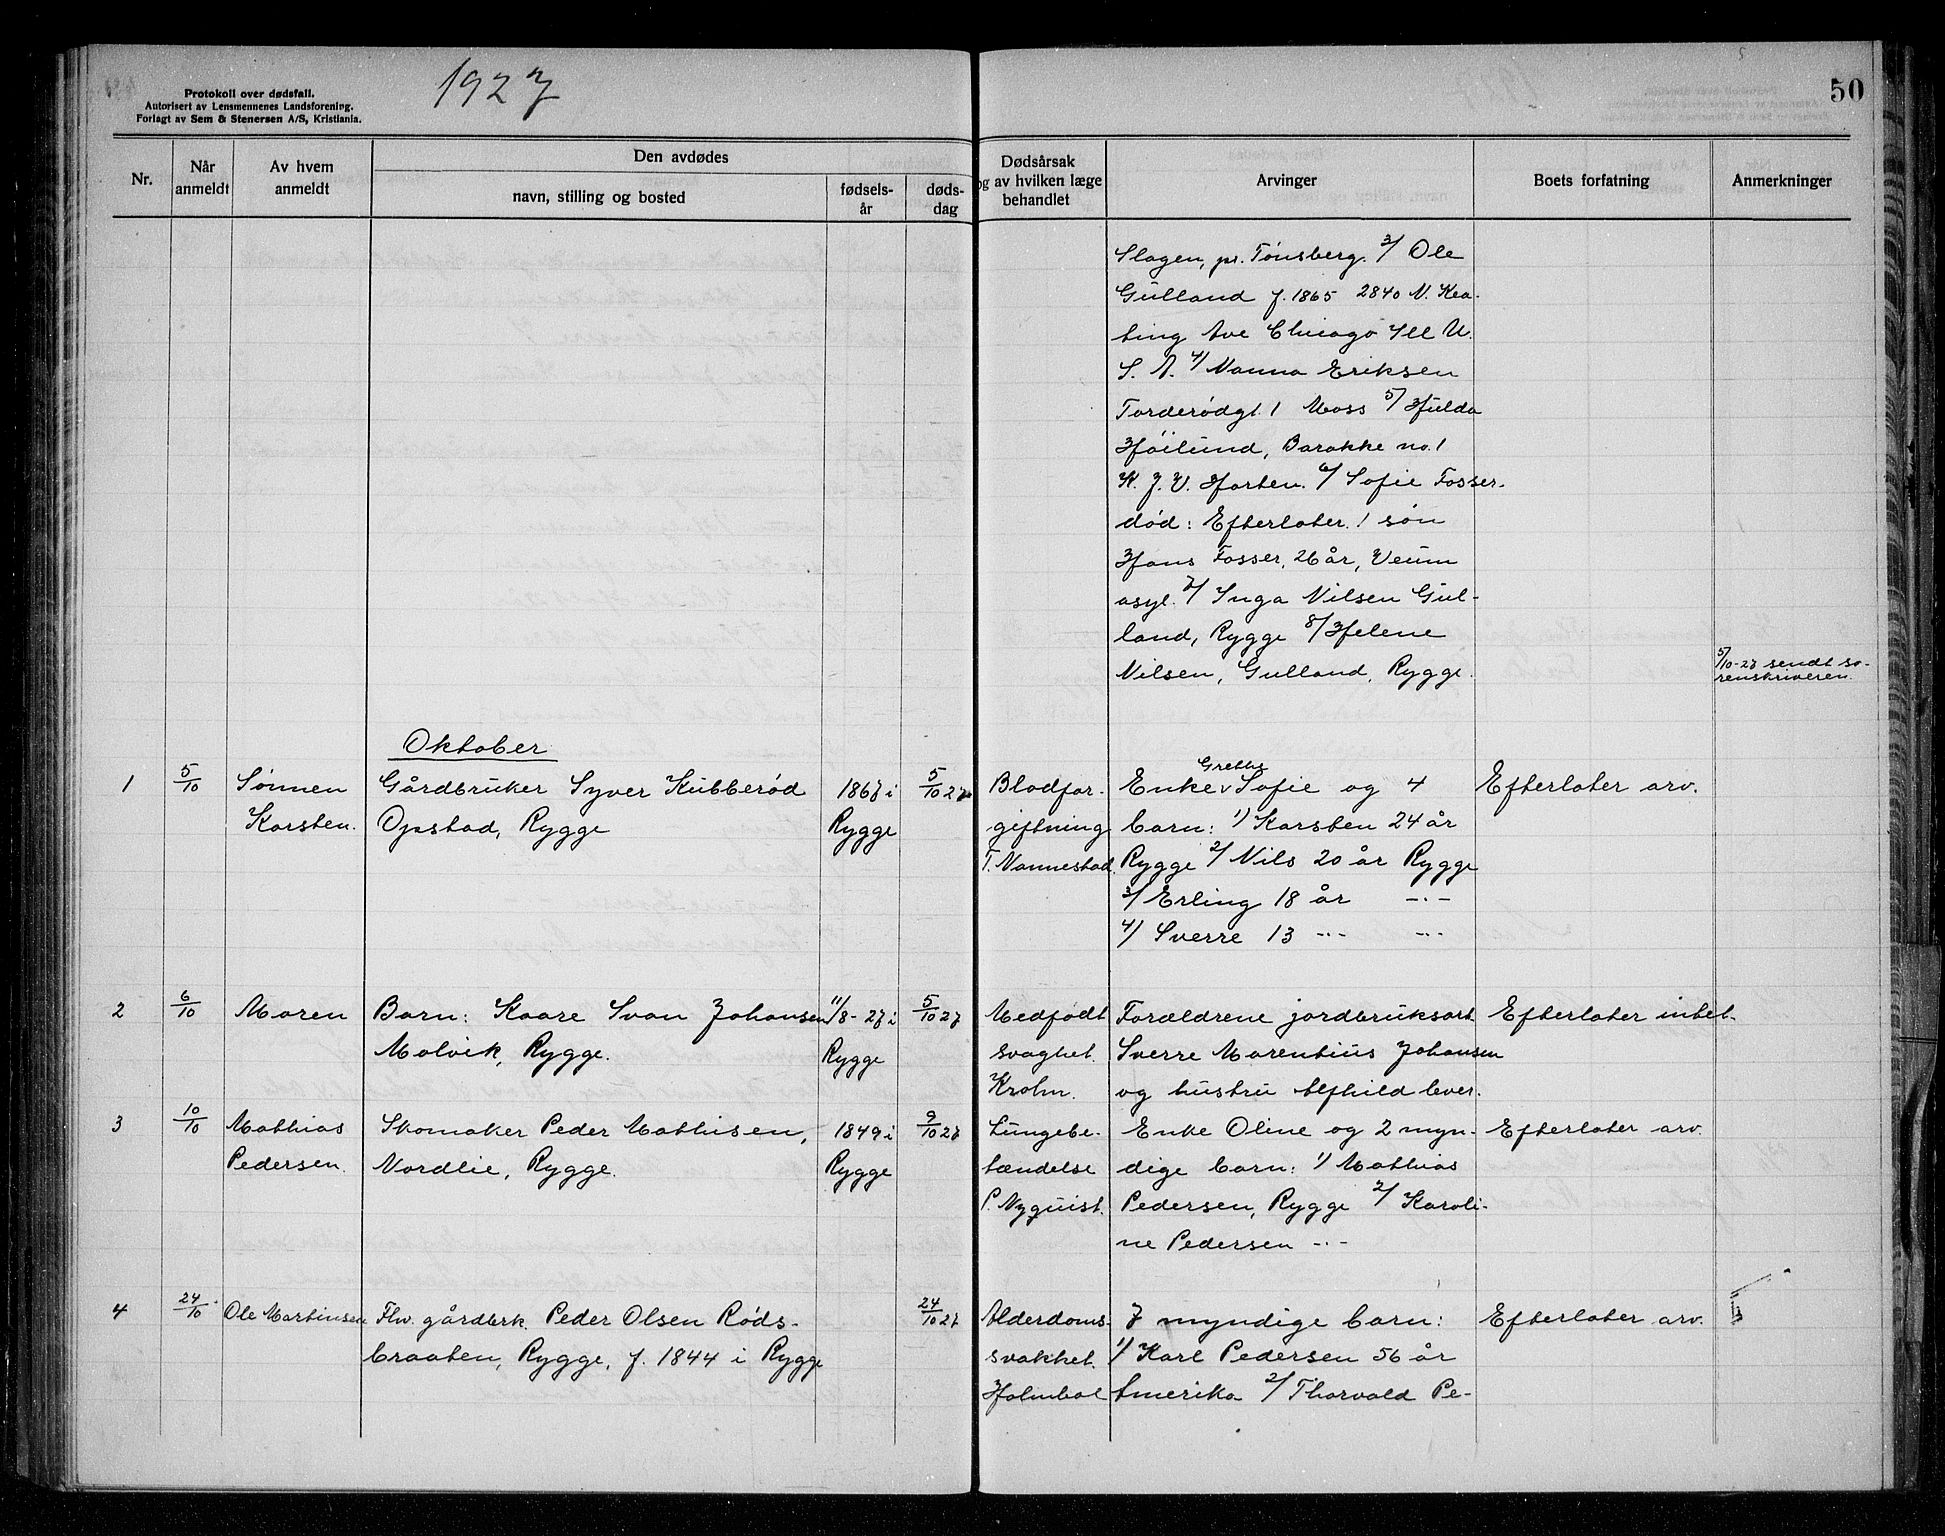 Protokoll over dødsfall.
Autorisert av Lensmennenes Landsforening.
Forlagt av Sem & Stenersen A/S, Kristiania.
1927
50
Nr.
Når anmeldt
Av hvem anmeldt
Den avdødes
navn, stilling og bosted
fødsels-år
døds-dag
Dødsårsak og av hvilken læge behandlet
Arvinger
Boets forfatning
Anmerkninger
Slagen, pr. Tønsberg. 3/ Ole
Gulland f. 1865 2840 N. Kea-
ting Ave Chicago Ill U.
S. A. 4/ Nanna Eriksen
Torderødgt. 1 Moss 5/ Hulda
Høilund, Barakke no. 1
K. J. V. Horten. 6/ Sofie Fosser-
død: Efterlater. 1 søn
Hans Fosser, 26 år, Veum
asyl. 7/ Inga Nilsen Gul-
land, Rygge 8/ Helene
Nilsen, Gulland, Rygge.
5/10-27 sendt so-
renskriveren.
Oktober
1
5/10
Sønnen
Karsten.
Gårdbruker Syver Kubberød
Opstad, Rygge
1867 i
Rygge
5/10 27
Blodfor-
giftning
T. Nannestad.
Grethe
Enke v Sofie og 4
barn: 1/ Karsten 24 år
Rygge 2/ Nils 20 år Rygge
3/ Erling 18 år -"-
4/ Sverre 13 -"- -"-
Efterlater arv.
2
6/10
Moren
Barn: Kaare Svan Johansen
Molvik, Rygge.
11/8-27 i
Rygge
5/10 27
Medfødt
svaghet.
Krohn.
Forældrene jordbruksarb.
Sverre Marentius Johansen
og hustru Alfhild lever.
Efterlater intet.
3
10/10
Mathias
Pedersen.
Skomaker Peder Mathisen,
Nordlie, Rygge.
1849 i
Rygge
9/10 27
Lungebe-
tændelse
P. Nyquist.
Enke Oline og 2 myn-
dige barn: 1/ Mathias
Pedersen, Rygge 2/ Karoli-
ne Pedersen -"-
Efterlater arv.
4
24/10
Ole Martinsen
Fhv. gårdbrk. Peder Olsen Røds-
braaten, Rygge, f. 1844 i Rygge
24/10 27
Alderdoms-
svakhet.
Holmboe
7 myndige barn:
1/ Karl Pedersen 56 år
Amerika 2/ Thorvald Pe-
Efterlater arv.